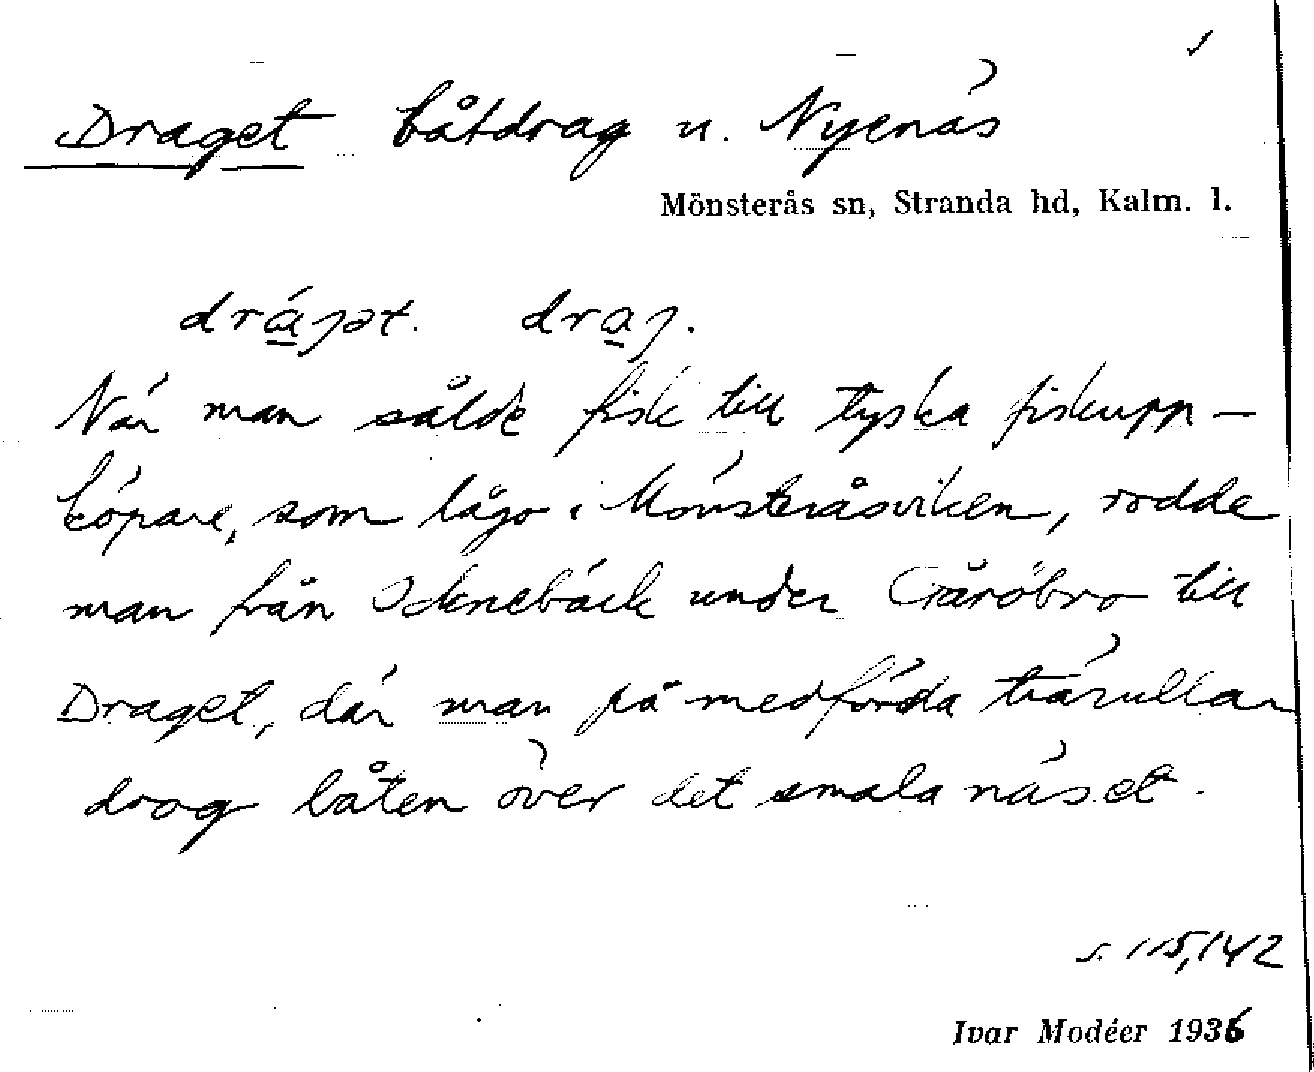 Draget båtdrag u. Nyenäs
Mönsterås sn, Stranda hd, Kalm. l.
När man sålde fisk till tyska fiskupp-
köpare, som lågo i Mönsteråsviken, rodde
man från Oknebäck under Gåröbro till
Draget, där man på medförda trärullar
drog båten över det smala näset.
s. 115,142
Ivar Modéer 1936